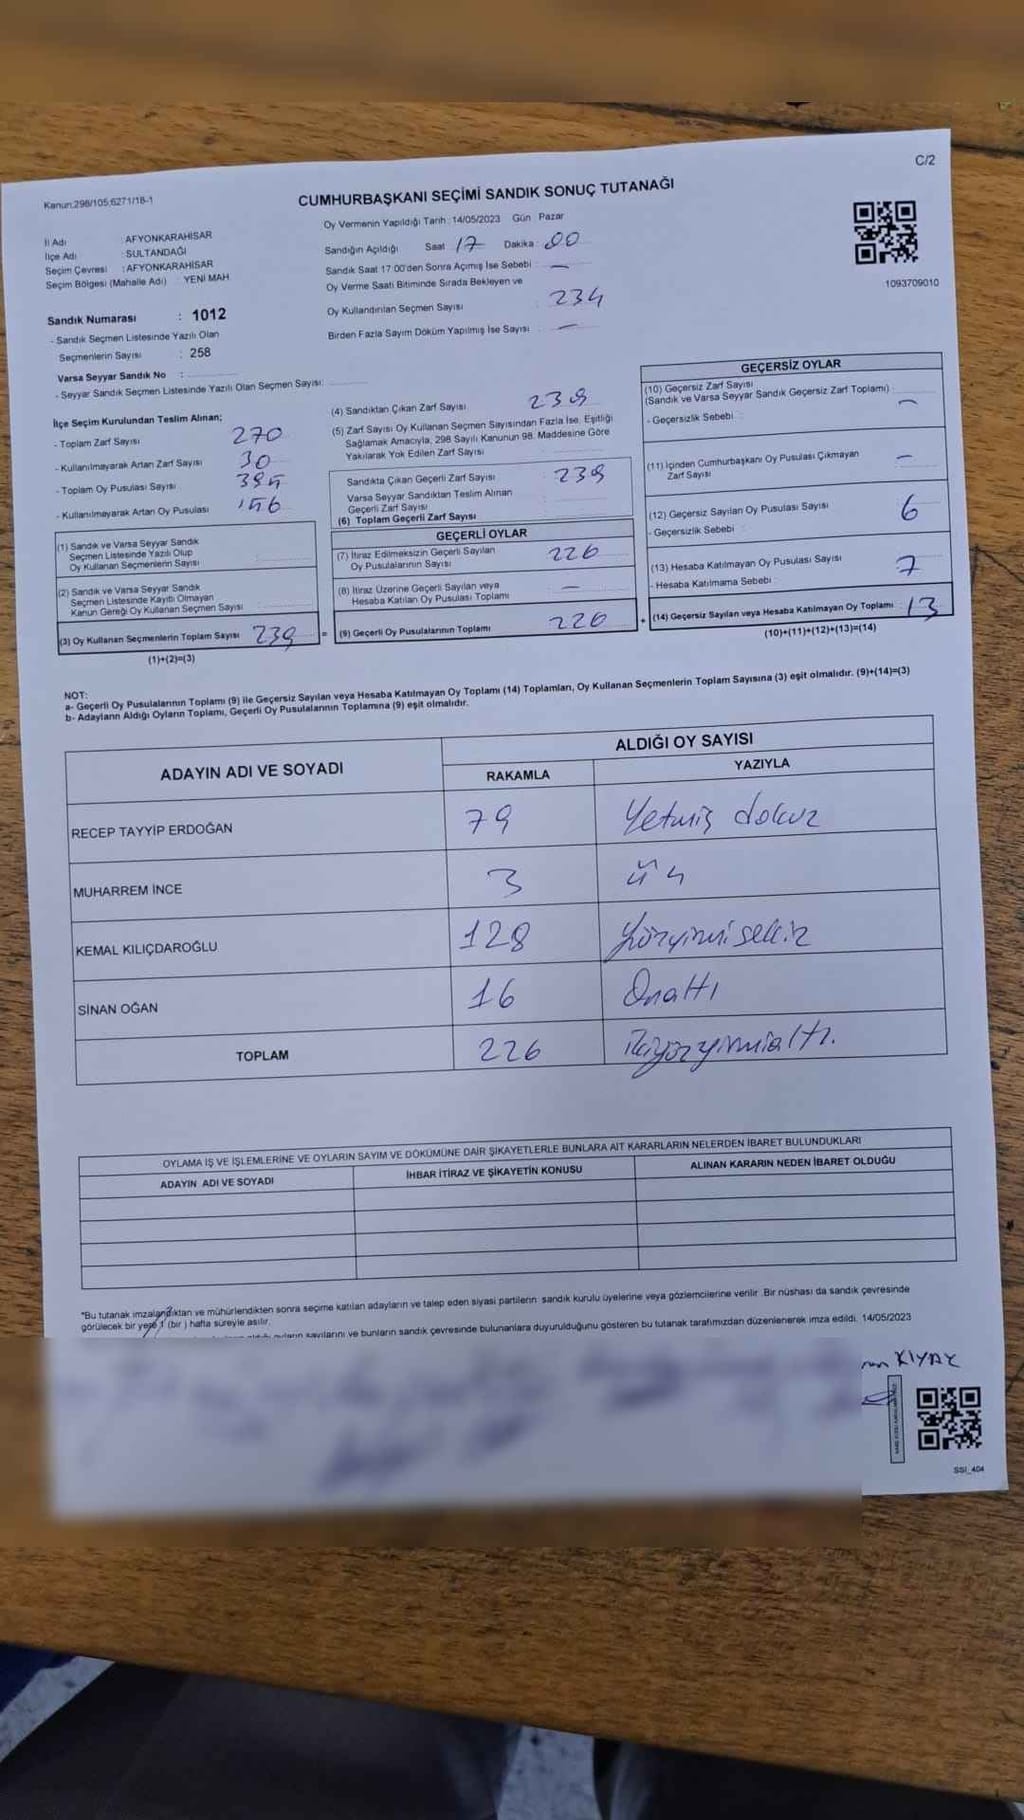 C/2
Kanun:298/105;6271/18-1
CUMHURBAŞKANI SEÇİMİ SANDIK SONUÇ TUTANAĞI
İl Adı : AFYONKARAHİSAR
İlçe Adı : SULTANDAĞI
Seçim Çevresi : AFYONKARAHİSAR
Seçim Bölgesi (Mahalle Adı) : YENİ MAH
Oy Vermenin Yapıldığı Tarih : 14/05/2023 Gün Pazar
Sandığın Açıldığı Saat 17 Dakika : 00
Sandık Saat 17:00'den Sonra Açılmış İse Sebebi : —
Oy Verme Saati Bitiminde Sırada Bekleyen ve
Oy Kullandırılan Seçmen Sayısı : 234
Birden Fazla Sayım Döküm Yapılmış İse Sayısı : —
1093709010
Sandık Numarası : 1012
- Sandık Seçmen Listesinde Yazılı Olan
Seçmenlerin Sayısı : 258
Varsa Seyyar Sandık No :
- Seyyar Sandık Seçmen Listesinde Yazılı Olan Seçmen Sayısı:
İlçe Seçim Kurulundan Teslim Alınan;
- Toplam Zarf Sayısı 270
- Kullanılmayarak Artan Zarf Sayısı 30
- Toplam Oy Pusulası Sayısı
- Kullanılmayarak Artan Oy Pusulası
(1) Sandık ve Varsa Seyyar Sandık
Seçmen Listesinde Yazılı Olup
Oy Kullanan Seçmenlerin Sayısı
(2) Sandık ve Varsa Seyyar Sandık
Seçmen Listesinde Kayıtlı Olmayan
Kanun Gereği Oy Kullanan Seçmen Sayısı
(3) Oy Kullanan Seçmenlerin Toplam Sayısı 239 =
(1)+(2)=(3)
(4) Sandıktan Çıkan Zarf Sayısı 239
(5) Zarf Sayısı Oy Kullanan Seçmen Sayısından Fazla İse, Eşitliği
Sağlamak Amacıyla, 298 Sayılı Kanunun 98. Maddesine Göre
Yakılarak Yok Edilen Zarf Sayısı
Sandıkta Çıkan Geçerli Zarf Sayısı 239
Varsa Seyyar Sandıktan Teslim Alınan
Geçerli Zarf Sayısı
(6) Toplam Geçerli Zarf Sayısı
GEÇERLİ OYLAR
(7) İtiraz Edilmeksizin Geçerli Sayılan
Oy Pusulalarının Sayısı 226
(8) İtiraz Üzerine Geçerli Sayılan veya
Hesaba Katılan Oy Pusulası Toplamı —
(9) Geçerli Oy Pusulalarının Toplamı 226 +
GEÇERSİZ OYLAR
(10) Geçersiz Zarf Sayısı
(Sandık ve Varsa Seyyar Sandık Geçersiz Zarf Toplamı) : —
- Geçersizlik Sebebi :
(11) İçinden Cumhurbaşkanı Oy Pusulası Çıkmayan
Zarf Sayısı —
(12) Geçersiz Sayılan Oy Pusulası Sayısı 6
- Geçersizlik Sebebi :
(13) Hesaba Katılmayan Oy Pusulası Sayısı 7
- Hesaba Katılmama Sebebi :
(14) Geçersiz Sayılan veya Hesaba Katılmayan Oy Toplamı : 13
(10)+(11)+(12)+(13)=(14)
NOT:
a- Geçerli Oy Pusulalarının Toplamı (9) ile Geçersiz Sayılan veya Hesaba Katılmayan Oy Toplamı (14) Toplamları, Oy Kullanan Seçmenlerin Toplam Sayısına (3) eşit olmalıdır. (9)+(14)=(3)
b- Adayların Aldığı Oyların Toplamı, Geçerli Oy Pusulalarının Toplamına (9) eşit olmalıdır.
ADAYIN ADI VE SOYADI ALDIĞI OY SAYISI
RAKAMLA YAZIYLA
RECEP TAYYİP ERDOĞAN 79 Yetmiş dokuz
MUHARREM İNCE 3 üç
KEMAL KILIÇDAROĞLU 128 Yüzyirmi sekiz
SİNAN OĞAN 16 Onaltı
TOPLAM 226 İkiyüzyirmialtı.
OYLAMA İŞ VE İŞLEMLERİNE VE OYLARIN SAYIM VE DÖKÜMÜNE DAİR ŞİKAYETLERLE BUNLARA AİT KARARLARIN NELERDEN İBARET BULUNDUKLARI
ADAYIN ADI VE SOYADI İHBAR İTİRAZ VE ŞİKAYETİN KONUSU ALINAN KARARIN NEDEN İBARET OLDUĞU
*Bu tutanak imzalandıktan ve mühürlendikten sonra seçime katılan adayların ve talep eden siyasi partilerin sandık kurulu üyelerine veya gözlemcilerine verilir. Bir nüshası da sandık çevresinde
görülecek bir yere 1 (bir) hafta süreyle asılır.
sayılarını ve bunların sandık çevresinde bulunanlara duyurulduğunu gösteren bu tutanak tarafımızdan düzenlenerek imza edildi. 14/05/2023
KIYAK
SSI_404